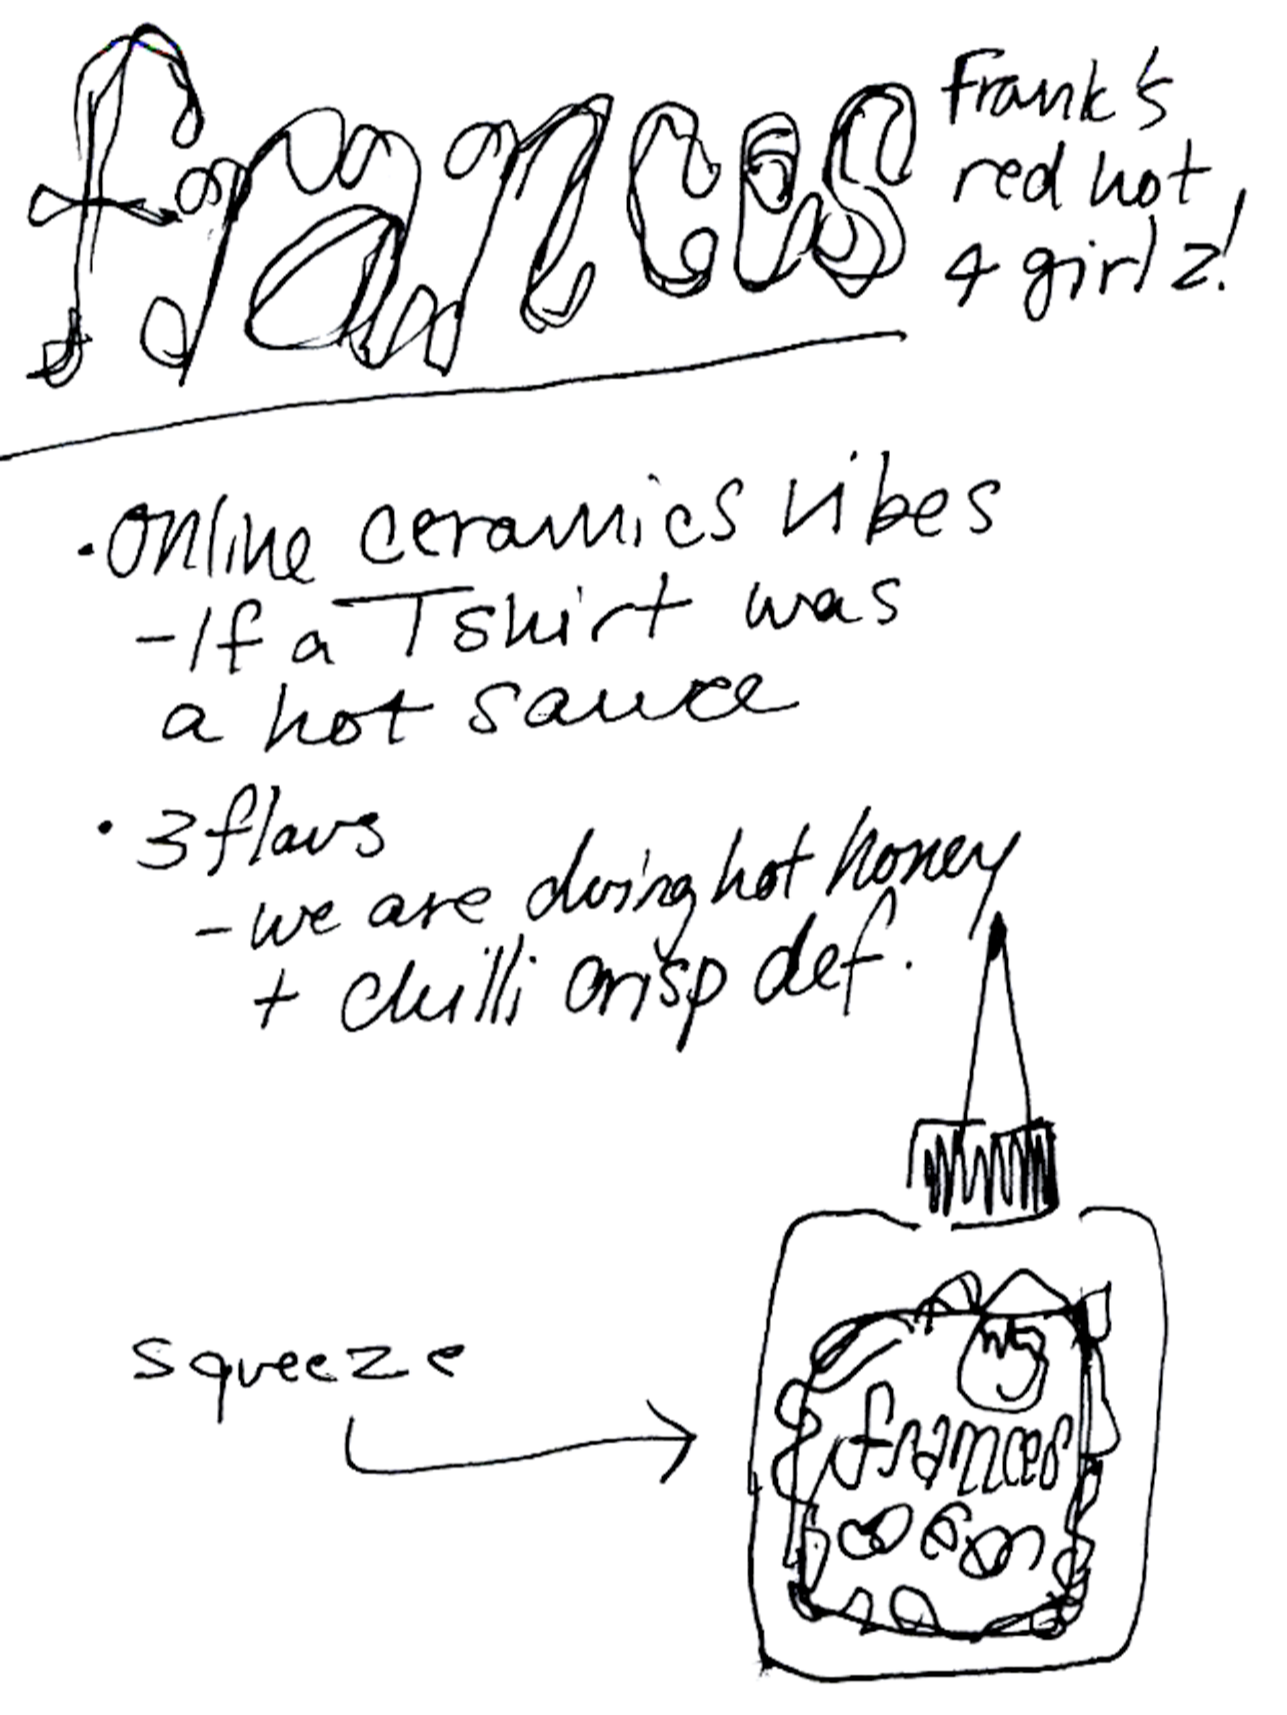 frances
Frank's
red hot
4 girlz!
• Online ceramics vibes
- If a Tshirt was
a hot sauce
• 3 flavs
- we are doing hot honey
+ chilli crisp def.
squeeze
frances